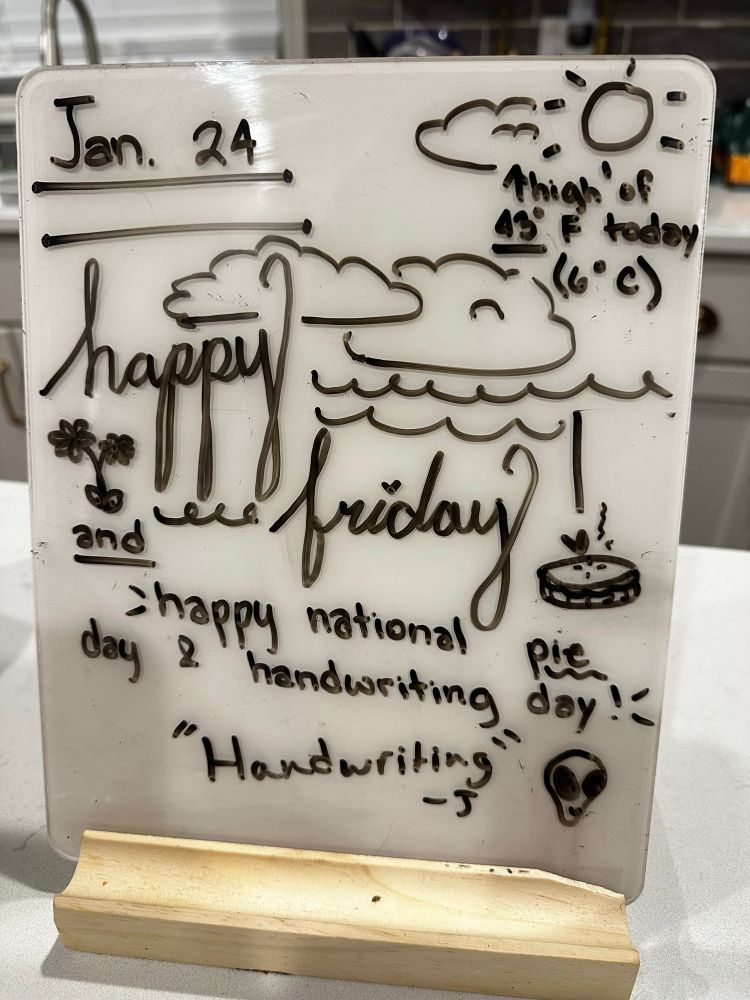 Jan. 24
↑high of
43° F today
(6° C)
happy
friday
and
happy national
handwriting
day &
pie
day!
"Handwriting"
-J